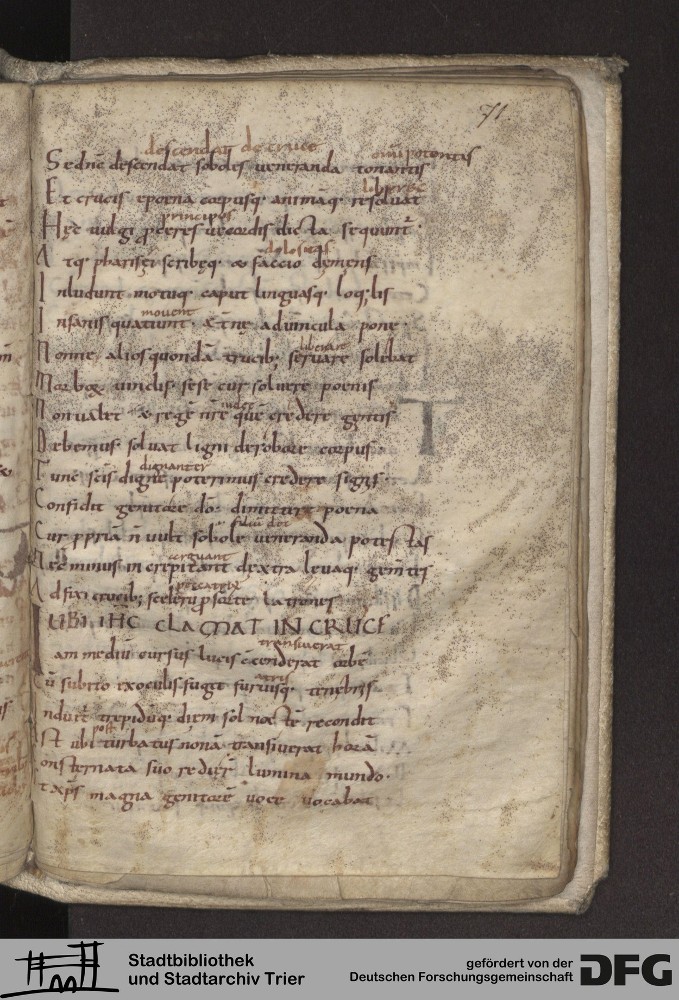 71
descendat de cruce omnipotentis
Sed nc̄ descendat soboles ueneranda tonantis
liberet
Et crucis e poena corpusq; animāq; resoluat
principes
Hęc uulgi proceres uecordis dicta sequunt̄
dolosus
Atq; pharisei scribęq; & factio demens
Inludunt motuq; caput linguasq; loq;lis
mouent
Insanis quatiunt
liberare
Nonne alios quondā trucib; seruare solebat
Morborum uinclis sese cur soluere poenis
iudei
Non ualet & regē nr̄e quē credere gentis
Debemus soluat ligni de robore corpus
dignanter
Tunc scīs dignę poterimus credere signis
Confidit genitore dō dimittere poena
filiū dei
Cur ppriā n̄ uult sobole ueneranda potestas
arguant
Nec minus increpitant dextra leuaq; gementes
Adfixi crucib; scelerū p sorte latrones
UBI IHC CLAMAT IN CRUCE
transiuerat
Iam mediū cursus lucis conscenderat orbē
atris
Cū subito ex oculis fugit furuisq; tenebris
Induit̄ trepidūq; diem sol nocte recondit
post
Ast ubi turbatus nonā transiuerat horā
Consternata suo redier̄ lumina mundo
Et xp̄s magna genitorē uoce uocabat
Stadtbibliothek
und Stadtarchiv Trier
gefördert von der
Deutschen Forschungsgemeinschaft
DFG